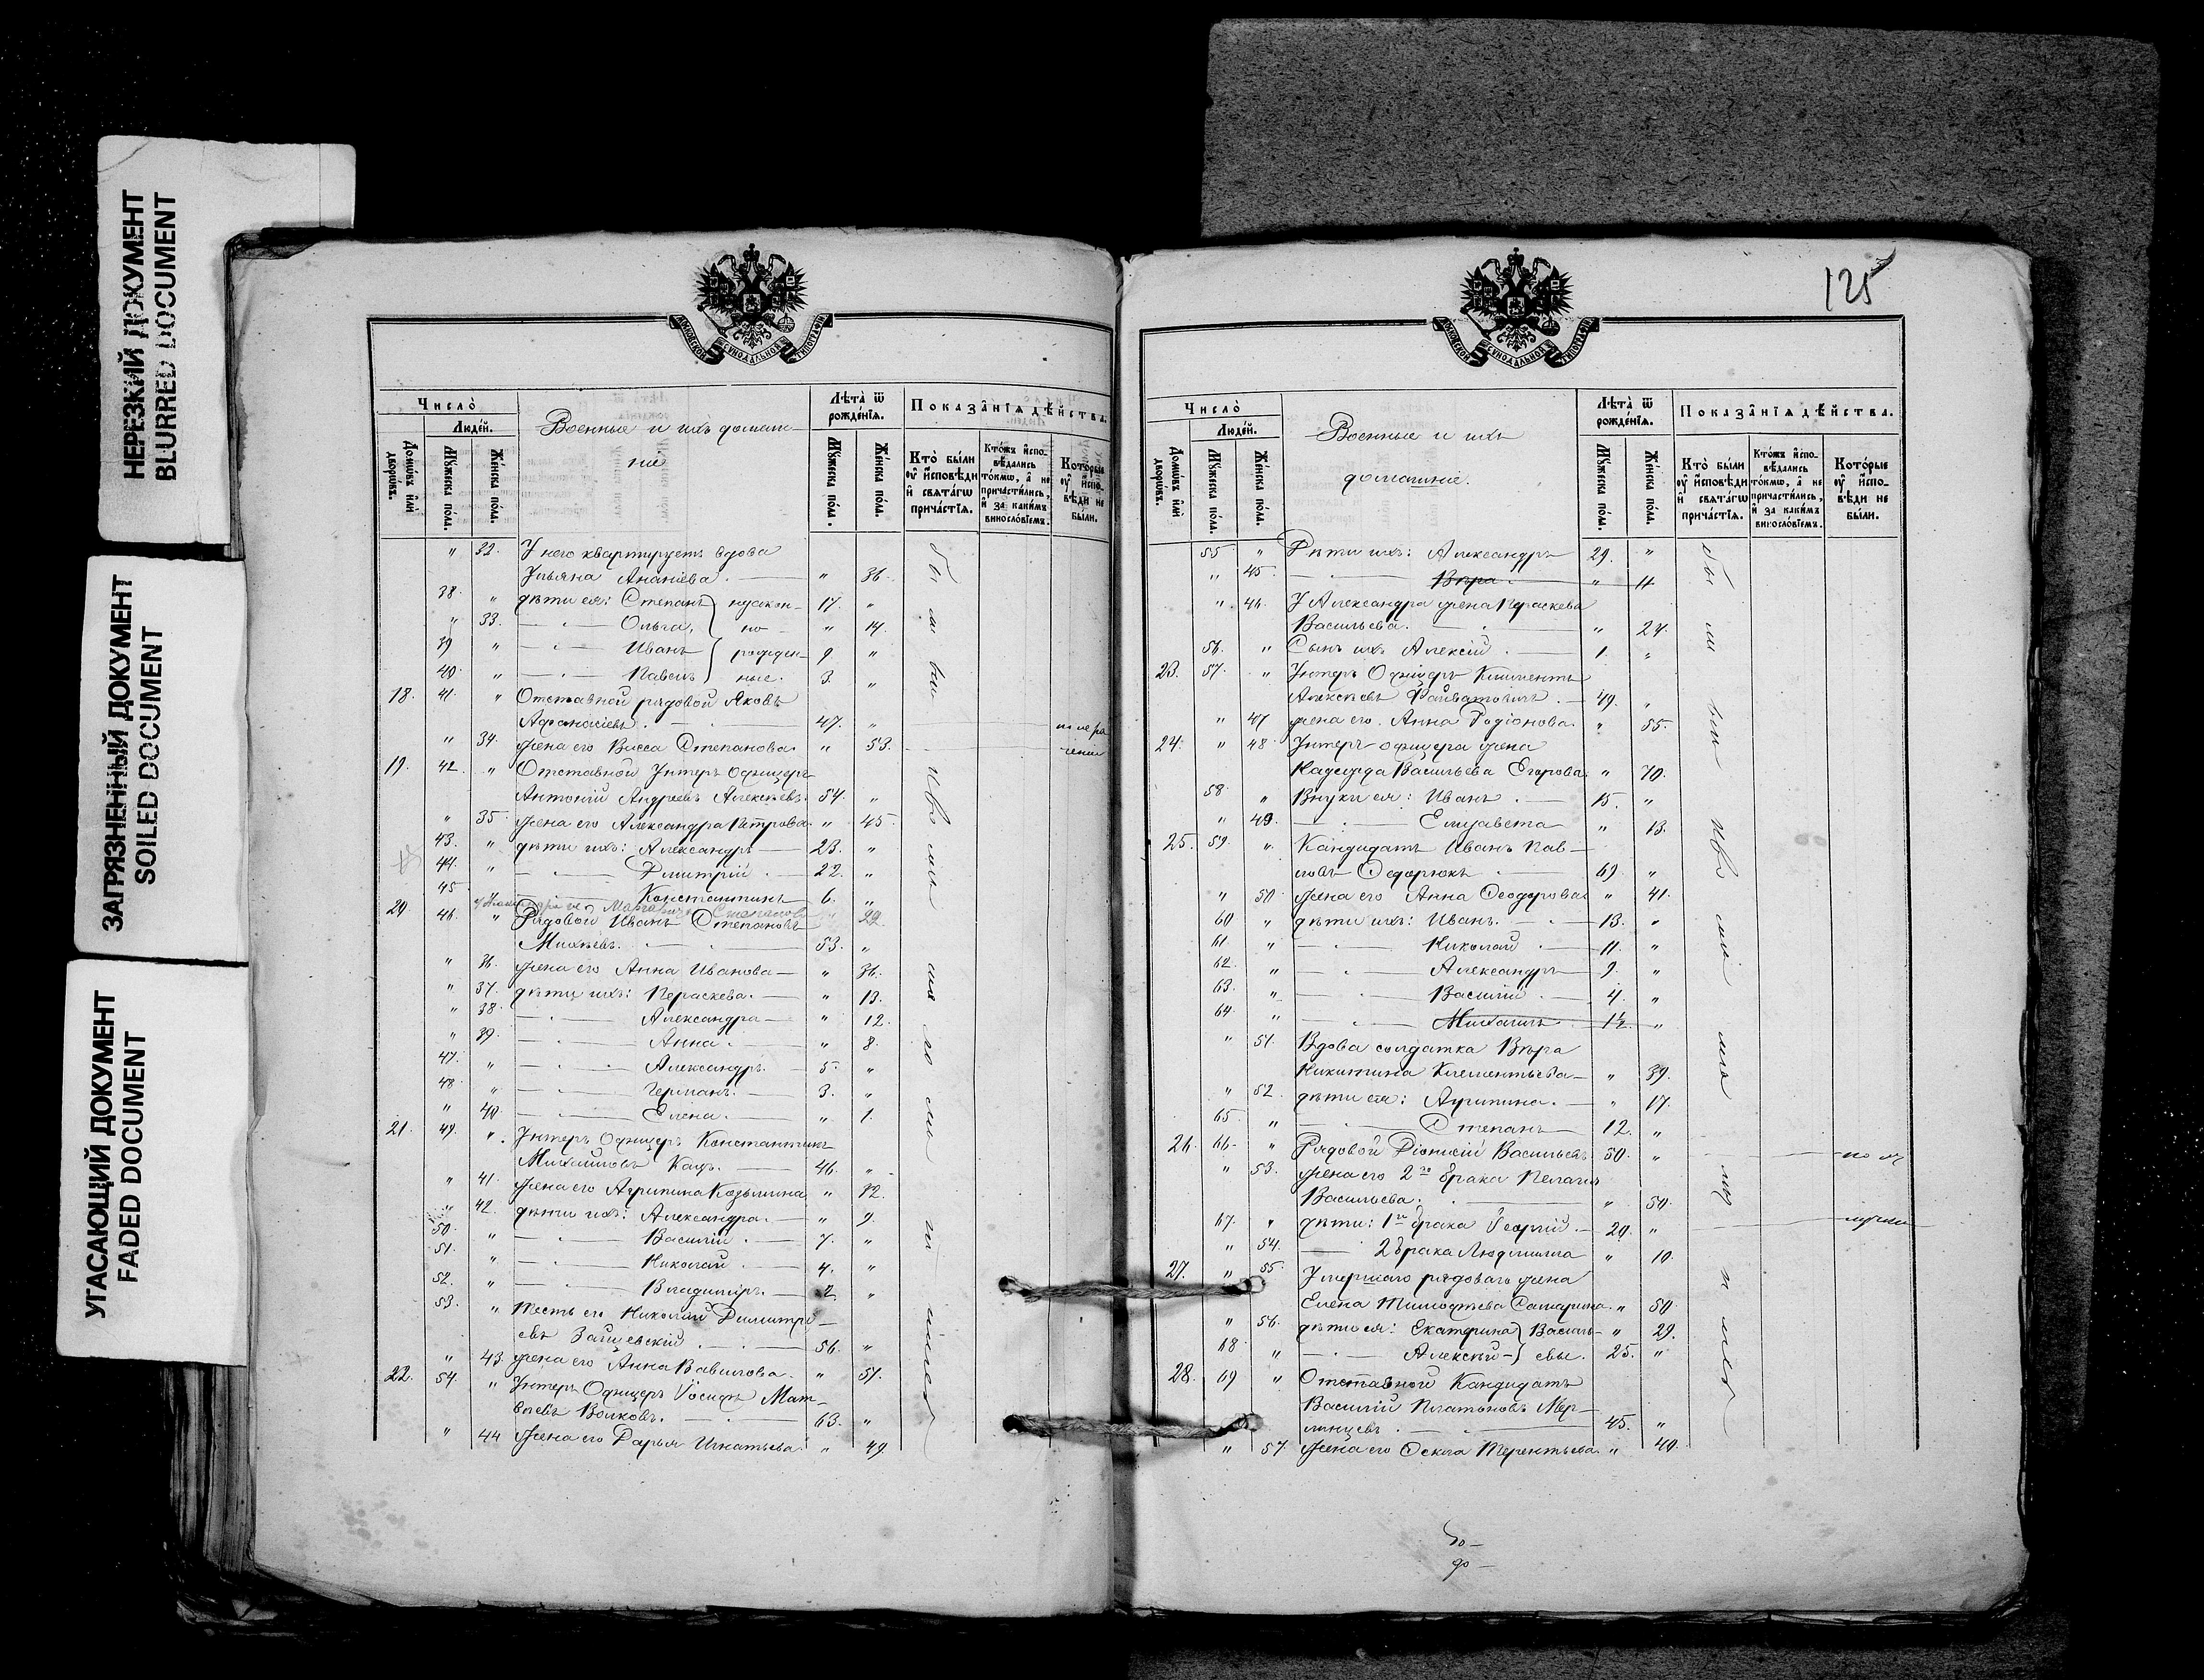 НЕРЕЗКИЙ ДОКУМЕНТ
BLURRED DOCUMENT
ЗАГРЯЗНЕННЫЙ ДОКУМЕНТ
SOILED DOCUMENT
УГАСАЮЩИЙ ДОКУМЕНТ
FADED DOCUMENT
МОСКОВСКОЙ СѴНОДАЛЬНОЙ ТИПОГРАФІИ
Число̀
Людéй.
Домѡ́въ и҆лѝ дворѡ́въ.
Мꙋ́жеска по́ла.
Же́нска по́ла.
Военные и ихъ домаш-
ніе
Лѣ́та ѿ рожде́нїѧ.
Мꙋ́жеска по́ла.
Же́нска по́ла.
Показа̑нїѧ дѣ́йства.
Кто̀ бы́ли ᲂу҆ и҆сповѣ́ди и҆ свѧта́гѡ прича́стїѧ.
Кто́жъ и҆спо-вѣ́дались то́кмѡ, а҆ не причасти́лись, и҆ за каки́мъ винослóвїемъ.
Кото́рые ᲂу҆ и҆спо-вѣ́ди не бы́ли.
" 32. У него квартируетъ вдова
Ульяна Ананіева. " 36.
38. " дѣти ея: Степанъ незакон- 17. "
" 33. Ольга, но " 14.
39 " Иванъ рожден- 9. "
40. " Павелъ ные. 3. "
18. 41. " Отставной рядовой Яковъ
Афанасіевъ. 47. "
" 34. жена его Васса Степанова. " 53.
19. 42. " Отставной Унтеръ Офицеръ
Антоній Андреевъ Алексѣевъ. 54. "
" 35. жена его Александра Петрова. " 45.
43. " дѣти ихъ: Александръ 23. "
44. " Димитрій. 22. "
45 Константинъ 6. "
20. 46. " Рядовой Иванъ Степановъ
Михѣевъ. 53. "
" 36. жена его Анна Иванова " 36.
" 37. дѣти ихъ: Параскева. " 13.
" 38. Александра " 12.
" 39. Анна. " 8.
47. " Александръ. 5. "
48. " Германъ. 3. "
" 40. Елена. " 1.
21. 49. " Унтеръ Офицеръ Константинъ
Михаиловъ Кацъ. 46. "
" 41. жена его Агрипина Козьмина " 32.
" 42. дѣти ихъ: Александра. " 9.
50. " Василій. 7. "
51. " Николай 4. "
52. " Владиміръ. 2. "
53. " Тесть его Николай Димитрі-
евъ Заіцевскій 56. "
" 43. жена его Анна Вавилова. " 51.
22. 54. " Унтеръ Офицеръ Іосифъ Мат-
вѣевъ Волковъ. 63. "
" 44 жена его Дарья Игнатьева. " 49.
125
МОСКОВСКОЙ СѴНОДАЛЬНОЙ ТИПОГРАФІИ
Число̀
Людéй.
Домѡ́въ и҆лѝ дворѡ́въ.
Мꙋ́жеска по́ла.
Же́нска по́ла.
Военные и ихъ
домашніе.
Лѣ́та ѿ рожде́нїѧ.
Мꙋ́жеска по́ла.
Же́нска по́ла.
Показа̑нїѧ дѣ́йства.
Кто̀ бы́ли ᲂу҆ и҆сповѣ́ди и҆ свѧта́гѡ прича́стїѧ.
Кто́жъ и҆спо-вѣ́дались то́кмѡ, а҆ не причасти́лись, и҆ за каки́мъ винослóвїемъ.
Кото́рые ᲂу҆ и҆спо-вѣ́ди не бы́ли.
55. " Дѣти ихъ: Александръ 29. "
" 45. Вѣра " 11
" 46. У Александра жена Параскева
Васильева. " 24.
56. " Сынъ ихъ Алексій. 1. "
23. 57. " Унтеръ Офицеръ Климентъ
Алексѣевъ 49. "
" 47 жена его Анна Родіонова. " 55.
24. " 48. Унтеръ-офицера жена
Надежда Васильева Егорова. " 70.
58 " Внуки ея: Иванъ. 15. "
" 49. Елизавета " 13.
25. 59. " Кандидатъ Иванъ Пав-
ловъ Федорюкъ 69. "
" 50 жена его Анна Феодорова " 41.
60 " дѣти ихъ: Иванъ. 13. "
61. " Николай 11. "
62. " Александръ 9. "
63. " Василій 4. "
64. " Михаилъ 1½. "
" 51. Вдова солдатка Вѣра
Никитина Клементьева " 39.
" 52. дѣти ея: Агрипина. " 17.
65. " Степанъ 12. "
26. 66. " Рядовой Діонисій Васильевъ 50. "
" 53. жена его 2го брака Пелагія
Васильева. " 50.
67. " дѣти: 1го брака Георгій. 20. "
" 54. 2 брака Людмила " 10.
27. " 55. Умершаго рядоваго жена
Елена Тимофѣева Самарина. " 50.
" 56. дѣти ея: Екатерина Василь- " 29.
68. " Алексѣй евы. 25. "
28. 69 " Отставной Кандидатъ
Василій Платоновъ Мер-
линцевъ. 45. "
" 57. жена его Фекла Терентьева. " 40.